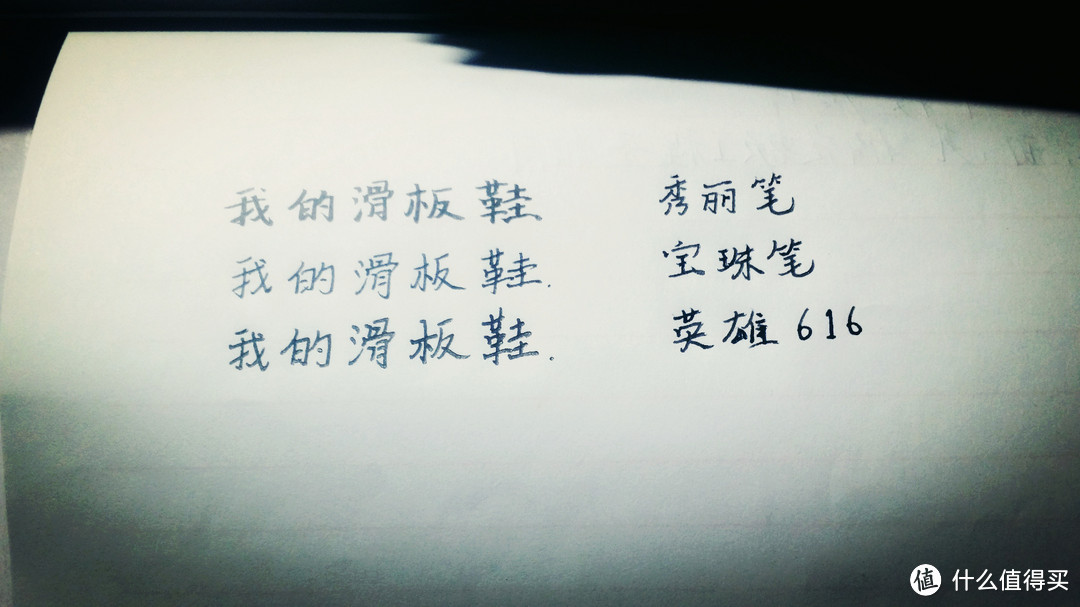 我的滑板鞋 秀丽笔
我的滑板鞋. 宝珠笔
我的滑板鞋. 英雄616
值 什么值得买